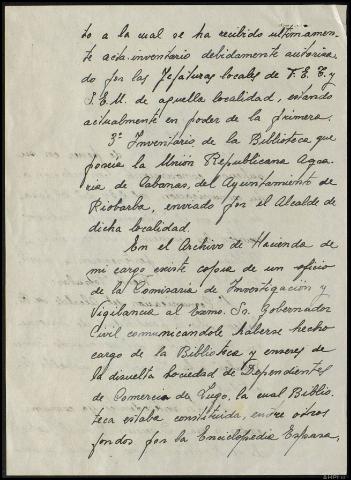 to a la cual se ha recibido ultimamen-
te acta inventario debidamente autoriza-
do por las Jefaturas locales de F.E.T. y
S.E.M. de aquella localidad, estando
actualmente en poder de la primera.
3º Inventario de la Biblioteca que
poseia la Unión Republicana Agra-
ria de Cabanas, del Ayuntamiento de
Riobarba, enviado por el Alcalde de
dicha localidad.
En el Archivo de Hacienda de
mi cargo existe copia de un oficio
de la Comisaria de Investigación y
Vigilancia al Excmo. Sr. Gobernador
Civil comunicándole haberse hecho
cargo de la Biblioteca y enseres de
la disuelta Sociedad de Dependientes
de Comercio de Lugo, la cual Biblio-
teca estaba constituida, entre otros
fondos por la Enciclopedia Espasa,